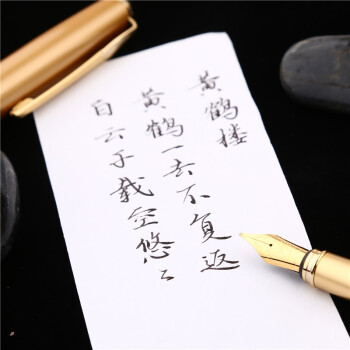 黄鹤楼
黄鹤一去不复返
白云千载空悠々